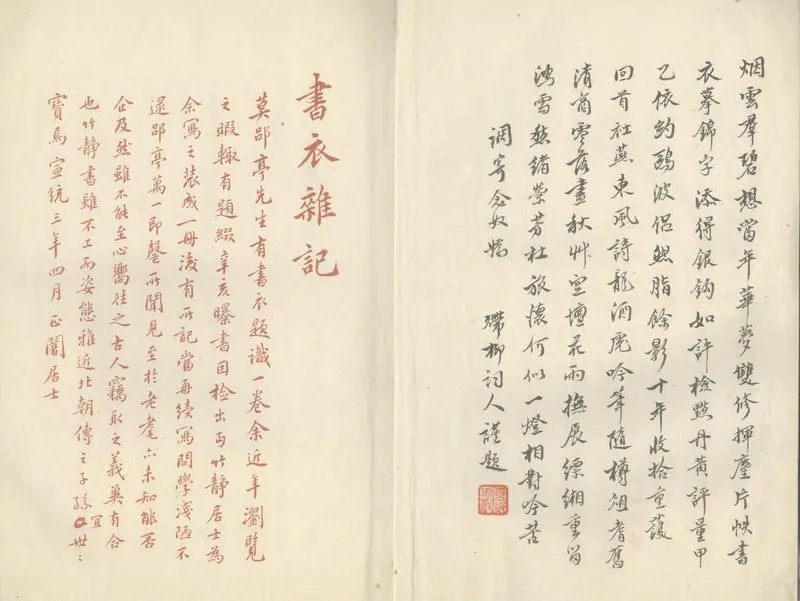 烟雲羣碧想當年華夢雙修揮麈片帙書
衣摹錦字添得銀鈎如許檢點丹黃評量甲
乙依約鷗波侶然脂餘影十年收拾重護
回首社燕東風詩龍酒虎吟筆隨樽俎耆舊
清商零落盡秋艸空壇花雨撫展縹緗重留
鴻雪愁緒縈芳杜旅懷何似一燈相對吟苦
調寄念奴嬌 殢柳詞人謹題
書衣雜記
莫郘亭先生有書衣題識一卷余近年瀏覽
之暇輒有題綴辛亥曝書因檢出丐竹静居士為
余寫之裝成一冊後有所記當再續寫問學淺陋不
逮郘亭萬一即罄所聞見至於老耄亦未知能否
企及然雖不能至心嚮往之古人竊取之義冀有合
也竹静書雖不工而姿態雅近北朝傳之子孫宜世:
寶焉宣統三年四月正闇居士